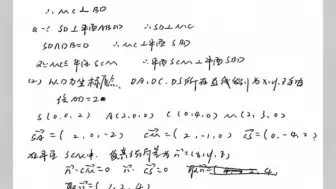 ∴ MC⊥BD
又∵ SD⊥平面ABCD ∴ SD⊥MC
SD∩BD=D ∴ MC⊥平面SBD
MC⊂平面SCM ∴ 平面SCM⊥平面SBD
(2) 以D为坐标原点, DA, DC, DS所在直线分别为x, y, z
AD=2
S(0,0,2) A(2,0,0) C(0,4,0) M(2,3,0)
SA=(2,0,-2) CM=(2,-1,0) CS=(0,-4,2)
在平面SCM中, 设其法向量为n=(x,y,z)
n·CM=0 n·CS=0
取n=(1,2,4)